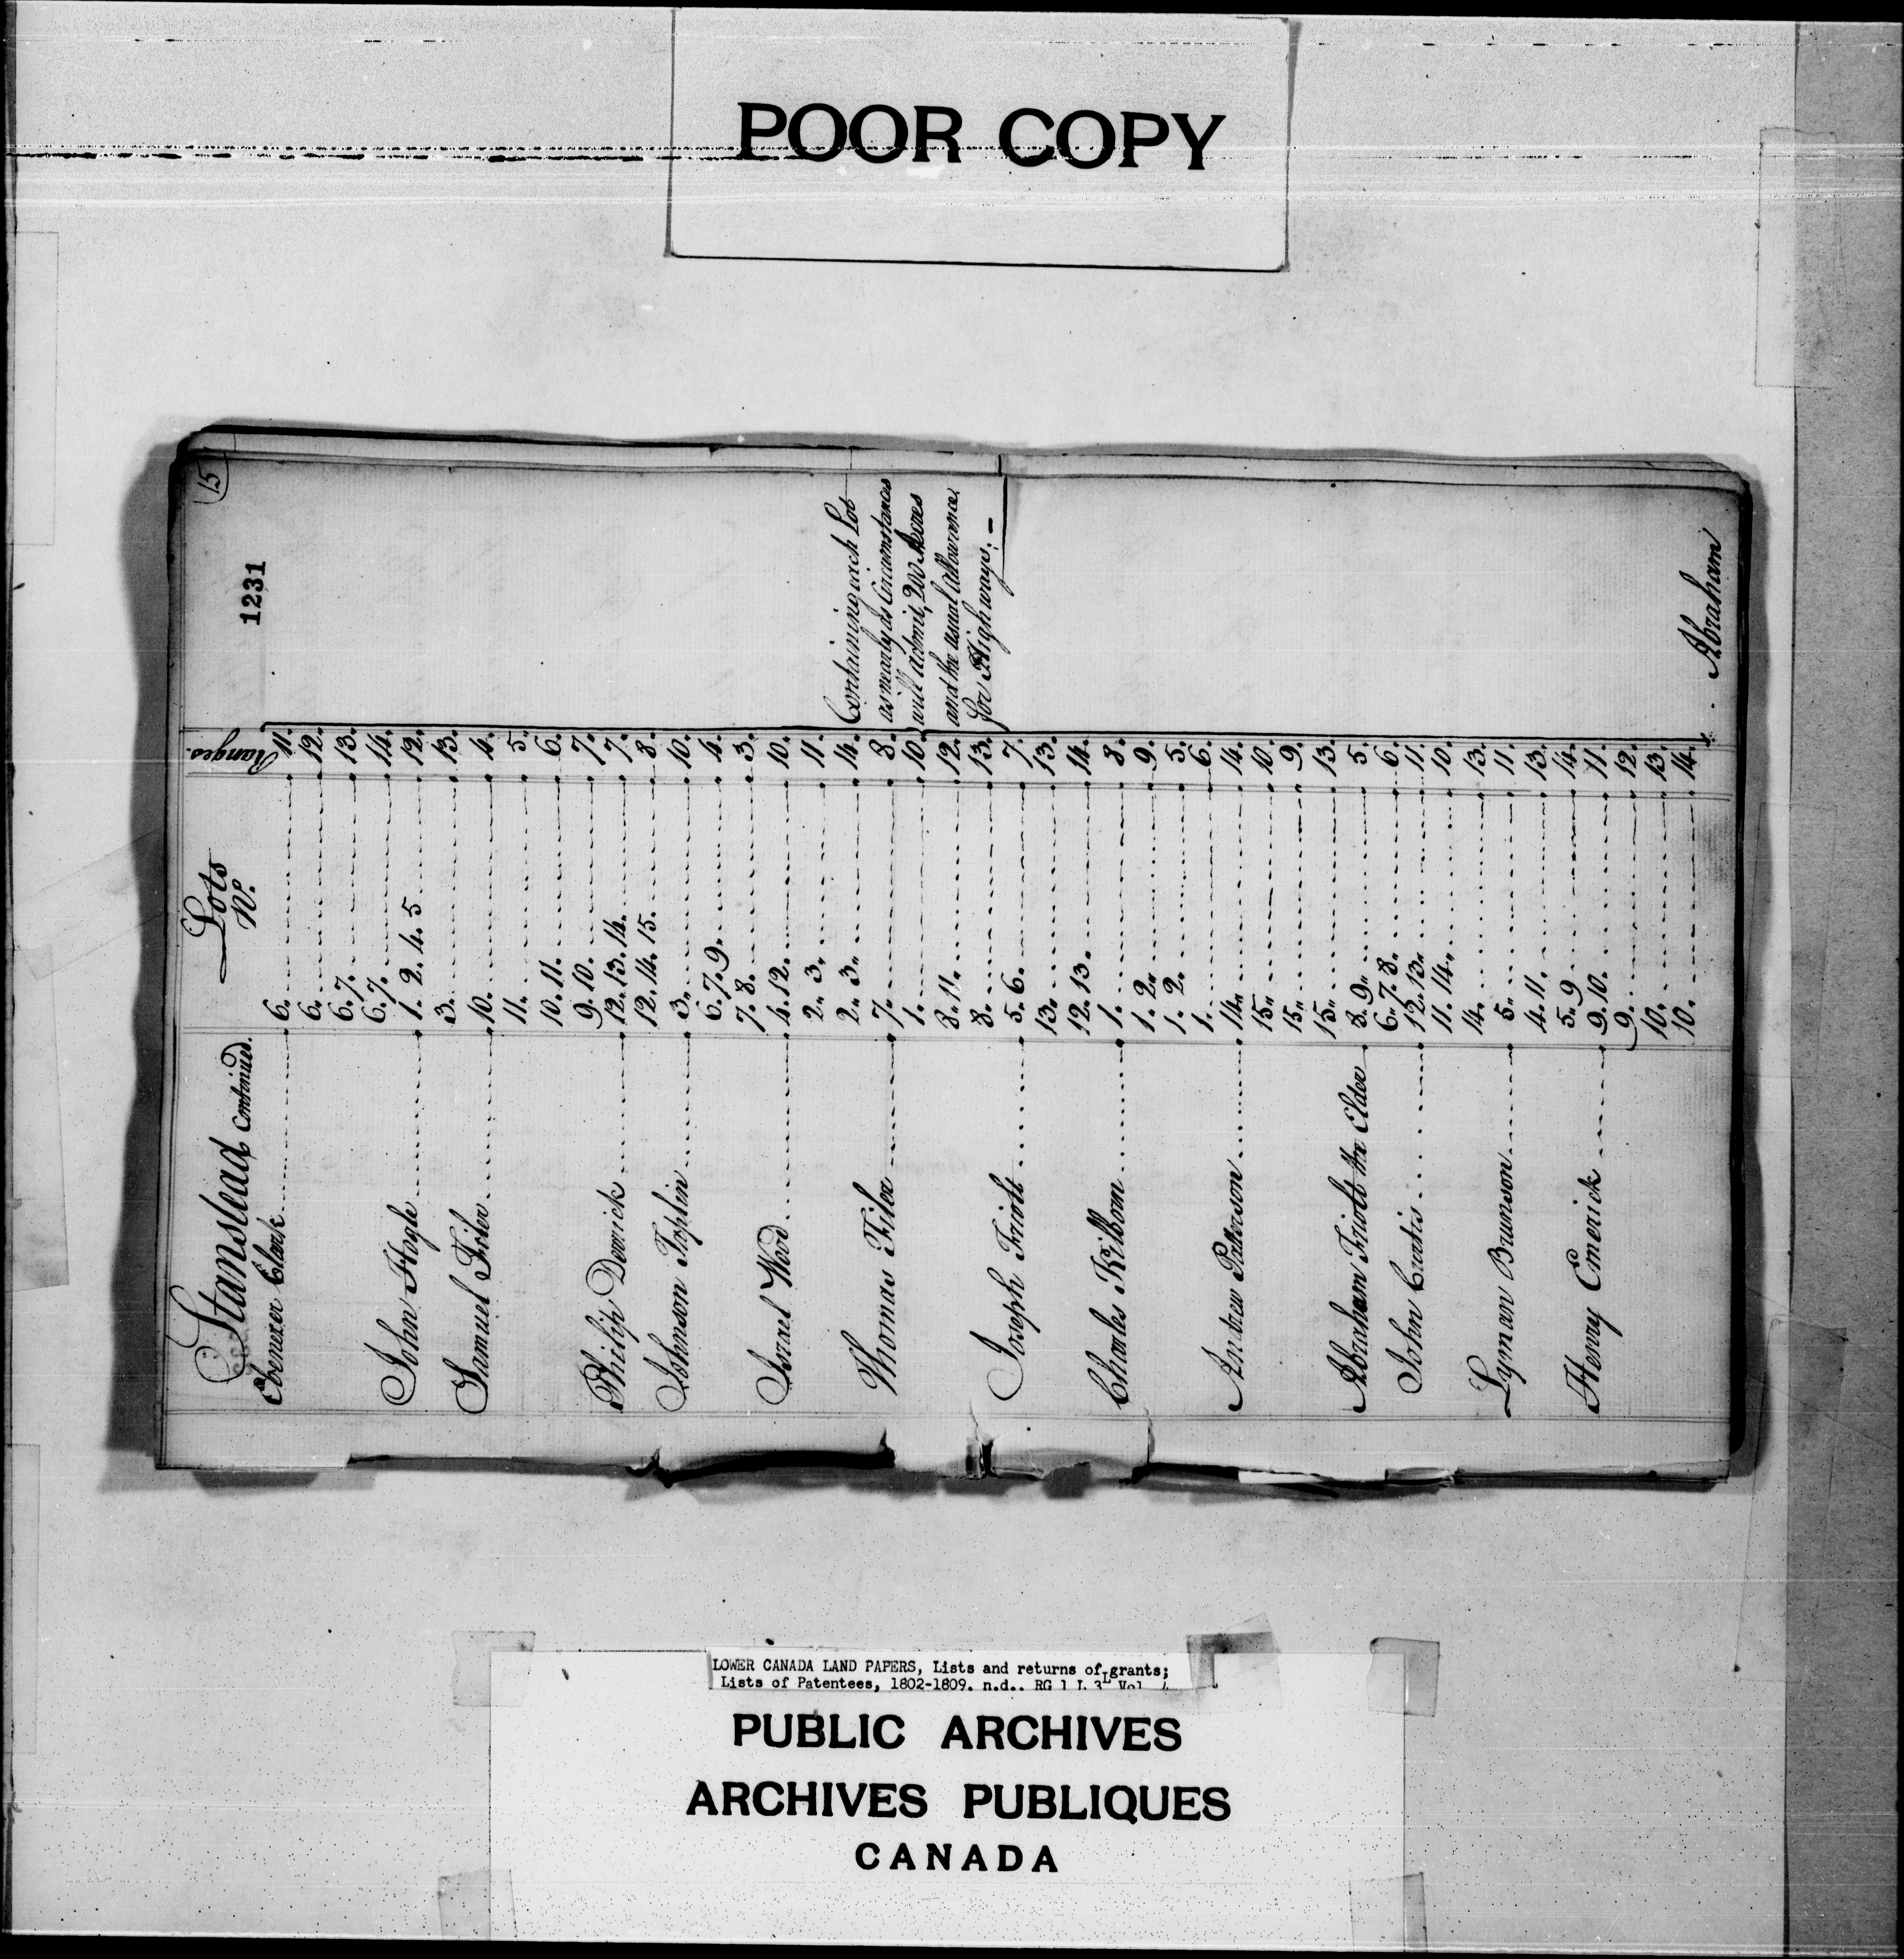 POOR COPY
15
1231
Stanstead continued.
Lots No.
Ranges.
Ebenezer Clark 6. 11.
6. 12.
6. 7. 13.
6. 7. 14.
John Hogle 1. 2. 4. 5 12.
3. 13.
Samuel Filer 10. 4.
11. 5.
10. 11. 6.
9. 10. 7.
Philip Derrick 12. 13. 14. 7.
12. 14. 15. 8.
Johnson Taplin 3. 10.
6. 7. 9. 4.
7. 8. 3.
Israel Wood 4. 12. 10.
2. 3. 11.
2. 3. 14.
Thomas Filer 7. 8.
1. 10.
3. 11. 12.
8. 13.
Joseph Friott 5. 6. 7.
13. 13.
12. 13. 14.
Charles Kilborn 1. 8.
1. 2. 9.
1. 2. 5.
1. 6.
Andrew Patterson 14. 14.
15. 10.
15. 9.
15. 13.
Abraham Friott the Elder 8. 9. 5.
6. 7. 8. 6.
John Curtis 12. 13. 11.
11. 14. 10.
14. 13.
Lyman Brunson 5. 11.
4. 11. 13.
5. 9 14.
Henry Emerick 9. 10. 11.
9. 12.
10. 13.
10. 14.
Containing each Lot
as nearly as Circumstances
will admit, 200 Acres
and the usual allowance
for Highways. —
Abraham
LOWER CANADA LAND PAPERS, Lists and returns of grants;
Lists of Patentees, 1802-1809. n.d.. RG 1 L 3L Vol
PUBLIC ARCHIVES
ARCHIVES PUBLIQUES
CANADA